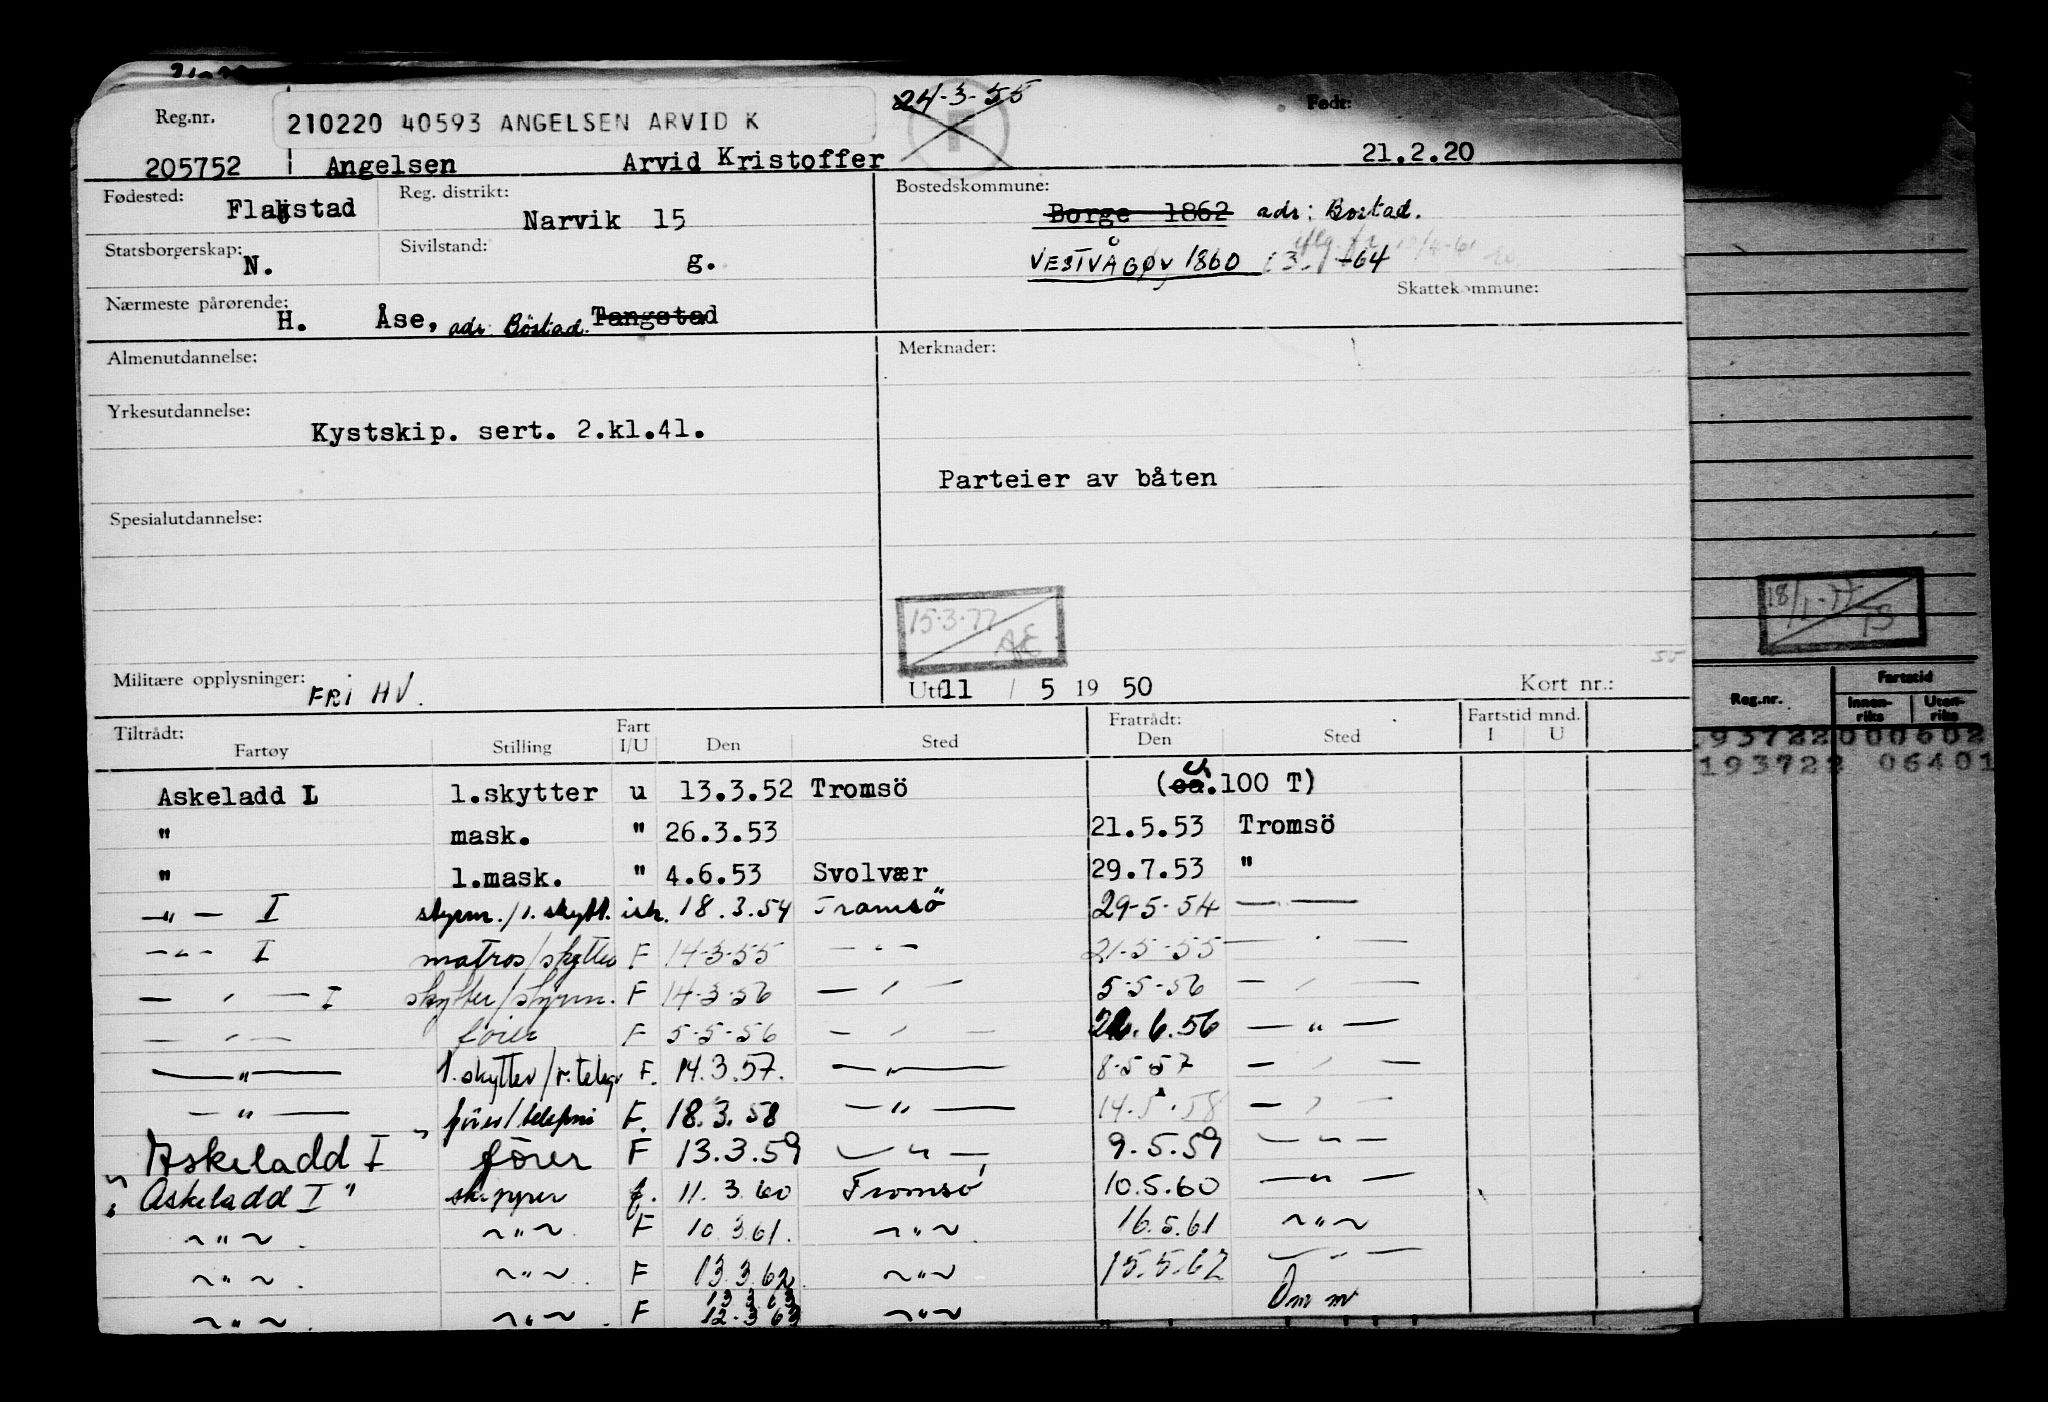 24-3-55
F
Reg.nr. 210220 40593 ANGELSEN ARVID K Født:
205752 Angelsen Arvid Kristoffer 21.2.20
Fødested: Flakstad Reg. distrikt: Narvik 15 Bostedskommune: Borge 1862 adr: Bostad.
Statsborgerskap: N. Sivilstand: g. VESTVÅGØY 1860 -64
Skattekommune:
Nærmeste pårørende: H. Åse, adr Böstad. Tangstad
Almenutdannelse: Merknader:
Yrkesutdannelse: Kystskip. sert. 2.kl.41.
Parteier av båten
Spesialutdannelse:
15-3-77 AE
18/1-77 TB
Militære opplysninger: FRI HV. Utf. 11 / 5 19 50 Kort nr.: 55
Tiltrådt: Fartøy Stilling Fart I/U Den Sted Fratrådt: Den Sted Fartstid mnd. I U
Reg.nr. Fartstid Innen-riks Uten-riks
193722000602
193722 06401
Askeladd I 1.skytter u 13.3.52 Tromsö (ca.100 T)
" mask. " 26.3.53 21.5.53 Tromsö
" 1.mask. " 4.6.53 Svolvær 29.7.53 "
—"— I styrm./1. skytt. ish. 18.3.54 Tromsö 29-5-54 — —
—"— I matros/skytter F 14-3-55 —"— 21-5-55 — " —
—"— I skytter/styrm. F 14-3-56 —"— 5-5-56 —"—
—"— förer F 5-5-56 —"— 26.6.56 —"—
—"— 1.skytter/r.telegr F. 14.3.57. —"— 8-5-57 —"—
—"— förer/telefoni F. 18.3.58 —"— 14-5-58 —"—
" Askeladd I förer F 13.3.59 —"— 9.5.59 —"—
" Askeladd I" skipper f. 11.3.60 Tromsö 10.5.60 —"—
~"~. ~"~. F 10.3.61. ~"~. 16.5.61 ~"~
~"~. ~"~. F 13.3.62. ~"~ 15.5.62 —"—
13 3 63
~"~. ~"~. F 12.3.63 ~"~ Om m